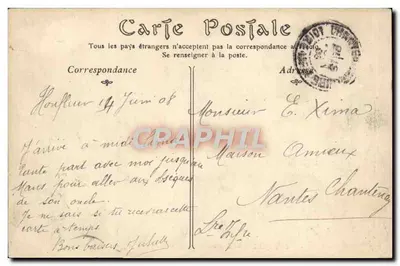 Carte Postale
Tous les pays étrangers n'acceptent pas la correspondance
Se renseigner à la poste.
Correspondance
Honfleur 14 Juin 08
Monsieur E. Xima
Maison Amieux
Nantes Chantenay
Lre Infre
J'arrive à midi
Tante part avec moi jusqu'au
Mans pour aller aux obsèques
de son oncle.
Je ne sais si tu recevras cette
carte a temps.
Bons baisers Juliette
CARTAPHIL